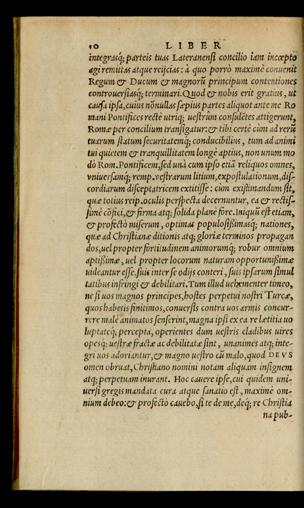 10 LIBER
integrasq; parteis tuas Lateranensi concilio iam incepto
agi remittas atque reijcias: à quo porrò maximè conuenit
Regum & Ducum & magnorũ principum contentiones
controuersiasq; terminari. Quod & nobis erit gratius, ut
causa ipsa, cuius nõnullas sæpius partes aliquot ante me Ro
mani Pontifices rectè utriq; uestrûm consulẽtes attigerunt,
Romæ per concilium transigatur: & tibi certè cùm ad rerũ
tuarum statum securitatemq; conducibilius, tum ad animi
tui quietem & tranquillitatem longè aptius, non unum mo
dò Rom. Pontificem, sed unà cum ipso etiã reliquos omnes,
vniuersamq; remp. uestrarum litium, expostulationum, dis-
cordiarum disceptatricem extitisse: cùm existimandum sit,
quæ totius reip. oculis perspecta decernuntur, ea & rectis-
simè cõfici, & firma atq; solida planè fore. Iniquũ est etiam,
& profectò miserum, optimas populosissimasq; nationes,
quæ ad Christianæ ditionis atq; gloriæ terminos propagan
dos, uel propter fortitudinem animorumq; robur omnium
aptissimæ, uel propter locorum naturam opportunissimæ
uideantur esse, suis inter se odijs conteri, suis ipsarum simul
tatibus infringi & debilitari. Tum illud uehementer timeo,
ne si uos magnos principes, hostes perpetui nostri Turcæ,
quos habetis finitimos, conuersis contra uos armis concur-
rere malè animatos senserint, magna ipsi ex ea re lætitia uo
luptateq; percepta, operientes dum uestris cladibus uires
opesq; uestræ fractæ ac debilitatæ sint, unanimes atq; inte-
gri uos adoriantur, & magno uestro cũ malo, quod DEVS
omen obruat, Christiano nomini notam aliquam insignem
atq; perpetuam inurant. Hoc cauere ipse, cui quidem uni-
uersi gregis mandata cura atque sanatio est, maximè om-
nium debeo: & profectò cauebo, si te de me, deq; re Christia
na pub-